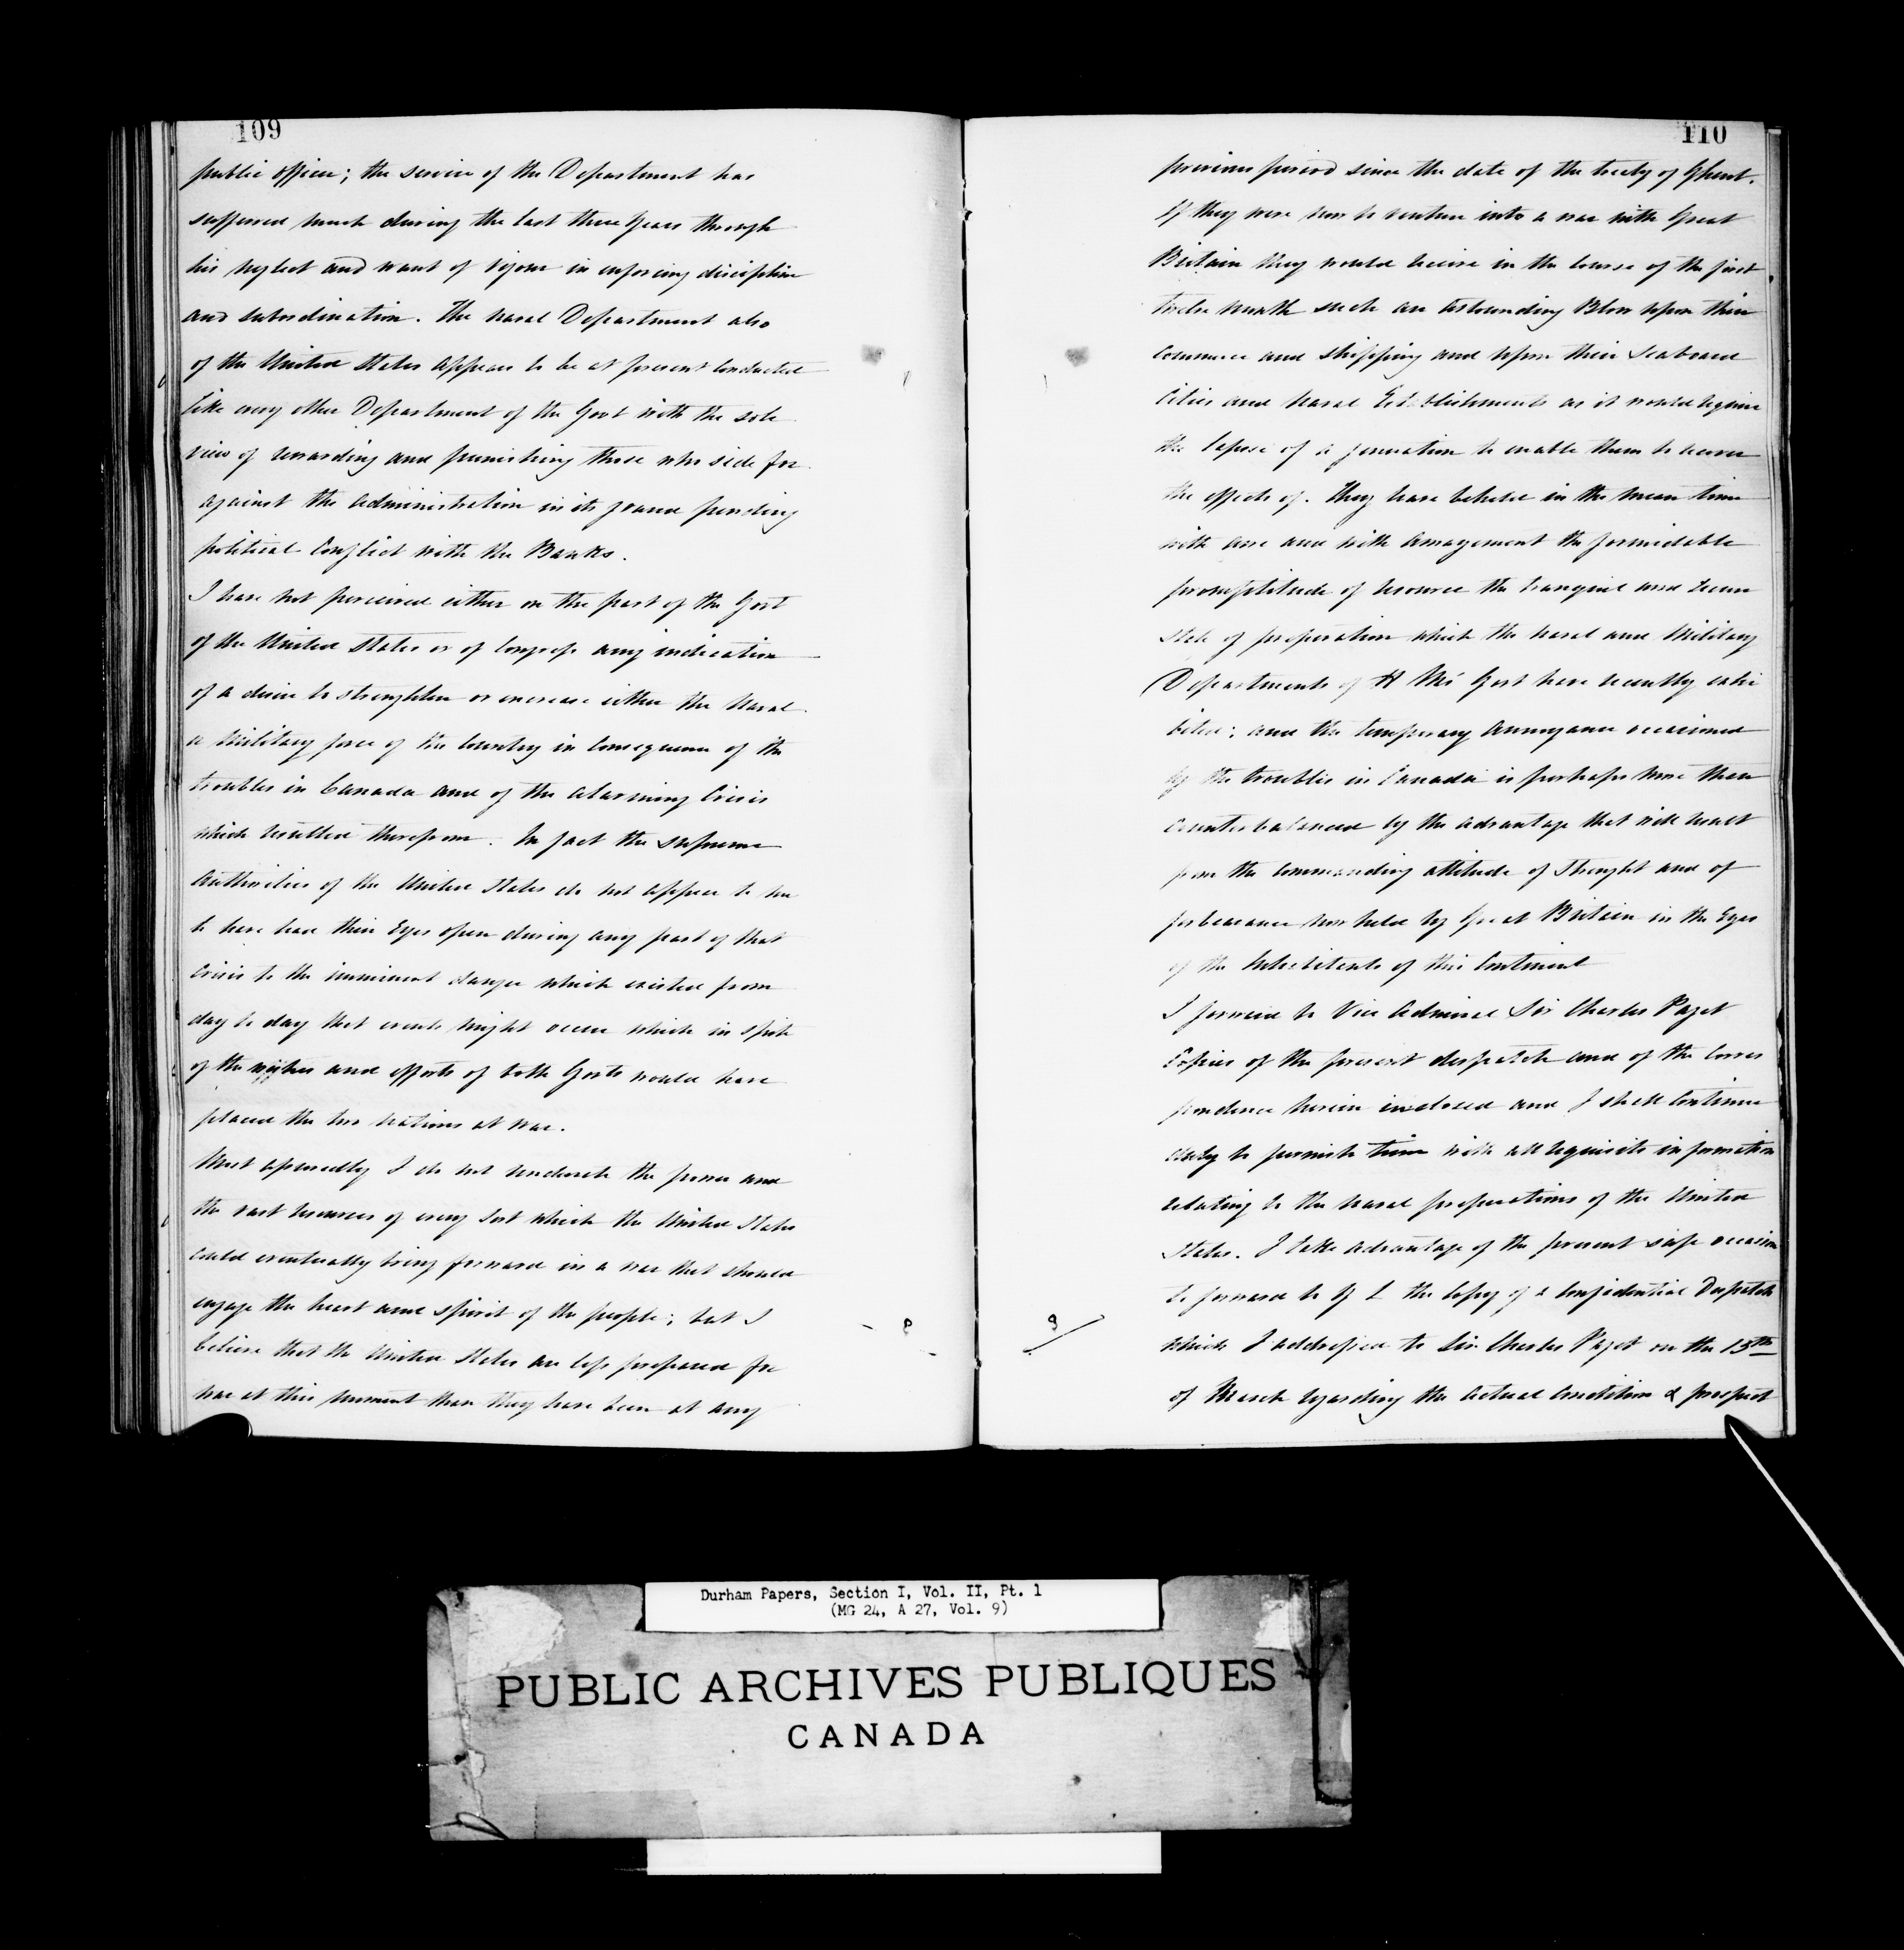 109
public officer; the service of the Department has
suffered much during the last three Years through
his neglect and want of vigour in enforcing discipline
and subordination. The naval Department also
of the United States appears to be at present conducted
like every other Department of the Govt with the sole
view of rewarding and punishing those who side for
against the administration in its grand pending
political Conflict with the Banks.
I have not perceived either on the part of the Govt
of the United States or of Congress any indication
of a desire to strengthen or increase either the Naval
or Military force of the Country in Consequence of the
troubles in Canada and of the alarming Crisis
which resulted therefrom. In fact the supreme
Authorities of the United States do not appear to me
to have had their Eyes open during any part of that
Crisis to the imminent danger which existed from
day to day that events might occur which in spite
of the wishes and efforts of both Govts would have
placed the two nations at war.
Most assuredly I do not underrate the power and
the vast resources of every sort which the United States
could eventually bring forward in a war that should
engage the heart and spirit of the people; but I
believe that the United States are less prepared for
war at this moment than they have been at any
110
previous period since the date of the treaty of Ghent.
If they were now to venture into a war with Great
Britain they would receive in the course of the first
twelve month such an astounding Blow upon their
commerce and shipping and upon their Seaboard
Cities and Naval Establishments as it would require
the lapse of a generation to enable them to recover
the effects of. They have beheld in the mean time
with awe and with amazement the formidable
promptitude of resource the tranquil and secure
state of preparation which the naval and Military
Departments of H Ms Govt have recently exhi
bited; and the temporary annoyance occasioned
by the troubles in Canada is perhaps more than
counterbalanced by the advantage that will result
from the commanding attitude of Strenght and of
forbearance now held by Great Britain in the Eyes
of the Inhabitants of this Continent
I forward to Vice Admiral Sir Charles Paget
Copies of the present despatch and of the corres
pondence herein inclosed and I shall Continue
duly to furnish him with all requisite information
relating to the naval preparations of the United
States. I take advantage of the present safe occasion
to forward to Y L the Copy of a Confidential Despatch
which I addressed to Sir Charles Paget on the 13th
of March regarding the actual Condition & prospect
Durham Papers, Section I, Vol. II, Pt. 1
(MG 24, A 27, Vol. 9)
PUBLIC ARCHIVES PUBLIQUES
CANADA